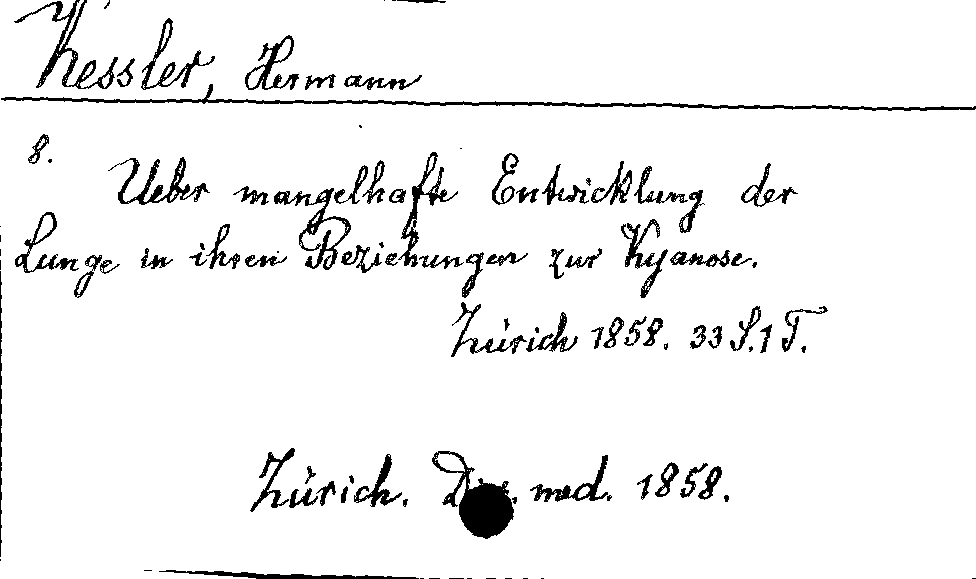 Kessler, Hermann
8.
Ueber mangelhafte Entwicklung der
Lunge in ihren Beziehungen zur Kyanose.
Zürich 1858. 33 S. 1 T.
Zürich. Diss. med. 1858.